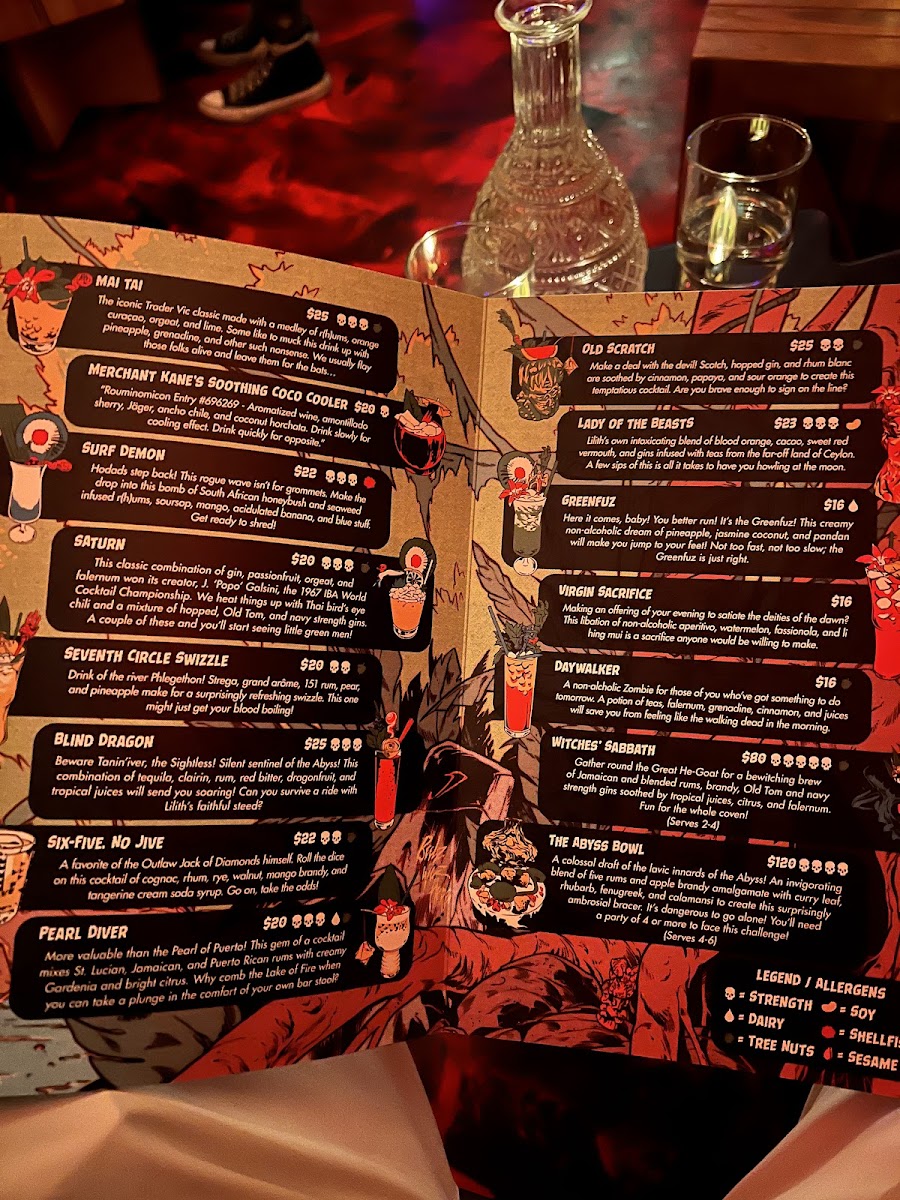 MAI TAI
$25
The iconic Trader Vic classic made with a medley of r(h)ums, orange
curaçao, orgeat, and lime. Some like to muck this drink up with
pineapple, grenadine, and other such nonsense. We usually flay
those folks alive and leave them for the bats...
MERCHANT KANE'S SOOTHING COCO COOLER $20
"Rouminomicon Entry #696269 - Aromatized wine, amontillado
sherry, Jäger, ancho chile, and coconut horchata. Drink slowly for
cooling effect. Drink quickly for opposite."
SURF DEMON
$22
Hodads step back! This rogue wave isn't for grommets. Make the
drop into this bomb of South African honeybush and seaweed
infused r(h)ums, soursop, mango, acidulated banana, and blue stuff.
Get ready to shred!
SATURN
$20
This classic combination of gin, passionfruit, orgeat, and
falernum won its creator, J. 'Popo' Galsini, the 1967 IBA World
Cocktail Championship. We heat things up with Thai bird's eye
chili and a mixture of hopped, Old Tom, and navy strength gins.
A couple of these and you'll start seeing little green men!
SEVENTH CIRCLE SWIZZLE
$20
Drink of the river Phlegethon! Strega, grand arôme, 151 rum, pear,
and pineapple make for a surprisingly refreshing swizzle. This one
might just get your blood boiling!
BLIND DRAGON
$25
Beware Tanin'iver, the Sightless! Silent sentinel of the Abyss! This
combination of tequila, clairin, rum, red bitter, dragonfruit, and
tropical juices will send you soaring! Can you survive a ride with
Lilith's faithful steed?
SIX-FIVE, NO JIVE
$22
A favorite of the Outlaw Jack of Diamonds himself. Roll the dice
on this cocktail of cognac, rhum, rye, walnut, mango brandy, and
tangerine cream soda syrup. Go on, take the odds!
PEARL DIVER
$20
More valuable than the Pearl of Puerto! This gem of a cocktail
mixes St. Lucian, Jamaican, and Puerto Rican rums with creamy
Gardenia and bright citrus. Why comb the Lake of Fire when
you can take a plunge in the comfort of your own bar stool?
OLD SCRATCH
$25
Make a deal with the devil! Scotch, hopped gin, and rhum blanc
are soothed by cinnamon, papaya, and sour orange to create this
temptatious cocktail. Are you brave enough to sign on the line?
LADY OF THE BEASTS
$23
Lilith's own intoxicating blend of blood orange, cacao, sweet red
vermouth, and gins infused with teas from the far-off land of Ceylon.
A few sips of this is all it takes to have you howling at the moon.
GREENFUZ
$16
Here it comes, baby! You better run! It's the Greenfuz! This creamy
non-alcoholic dream of pineapple, jasmine coconut, and pandan
will make you jump to your feet! Not too fast, not too slow; the
Greenfuz is just right.
VIRGIN SACRIFICE
$16
Making an offering of your evening to satiate the deities of the dawn?
This libation of non-alcoholic aperitivo, watermelon, fassionola, and li
hing mui is a sacrifice anyone would be willing to make.
DAYWALKER
$16
A non-alcholic Zombie for those of you who've got something to do
tomorrow. A potion of teas, falernum, grenadine, cinnamon, and juices
will save you from feeling like the walking dead in the morning.
WITCHES' SABBATH
$80
Gather round the Great He-Goat for a bewitching brew
of Jamaican and blended rums, brandy, Old Tom and navy
strength gins soothed by tropical juices, citrus, and falernum.
Fun for the whole coven!
(Serves 2-4)
THE ABYSS BOWL
$120
A colossal draft of the lavic innards of the Abyss! An invigorating
blend of five rums and apple brandy amalgamate with curry leaf,
rhubarb, fenugreek, and calamansi to create this surprisingly
ambrosial bracer. It's dangerous to go alone! You'll need
a party of 4 or more to face this challenge!
(Serves 4-6)
LEGEND / ALLERGENS
= STRENGTH
= SOY
= DAIRY
= SHELLFIS
= TREE NUTS
= SESAME